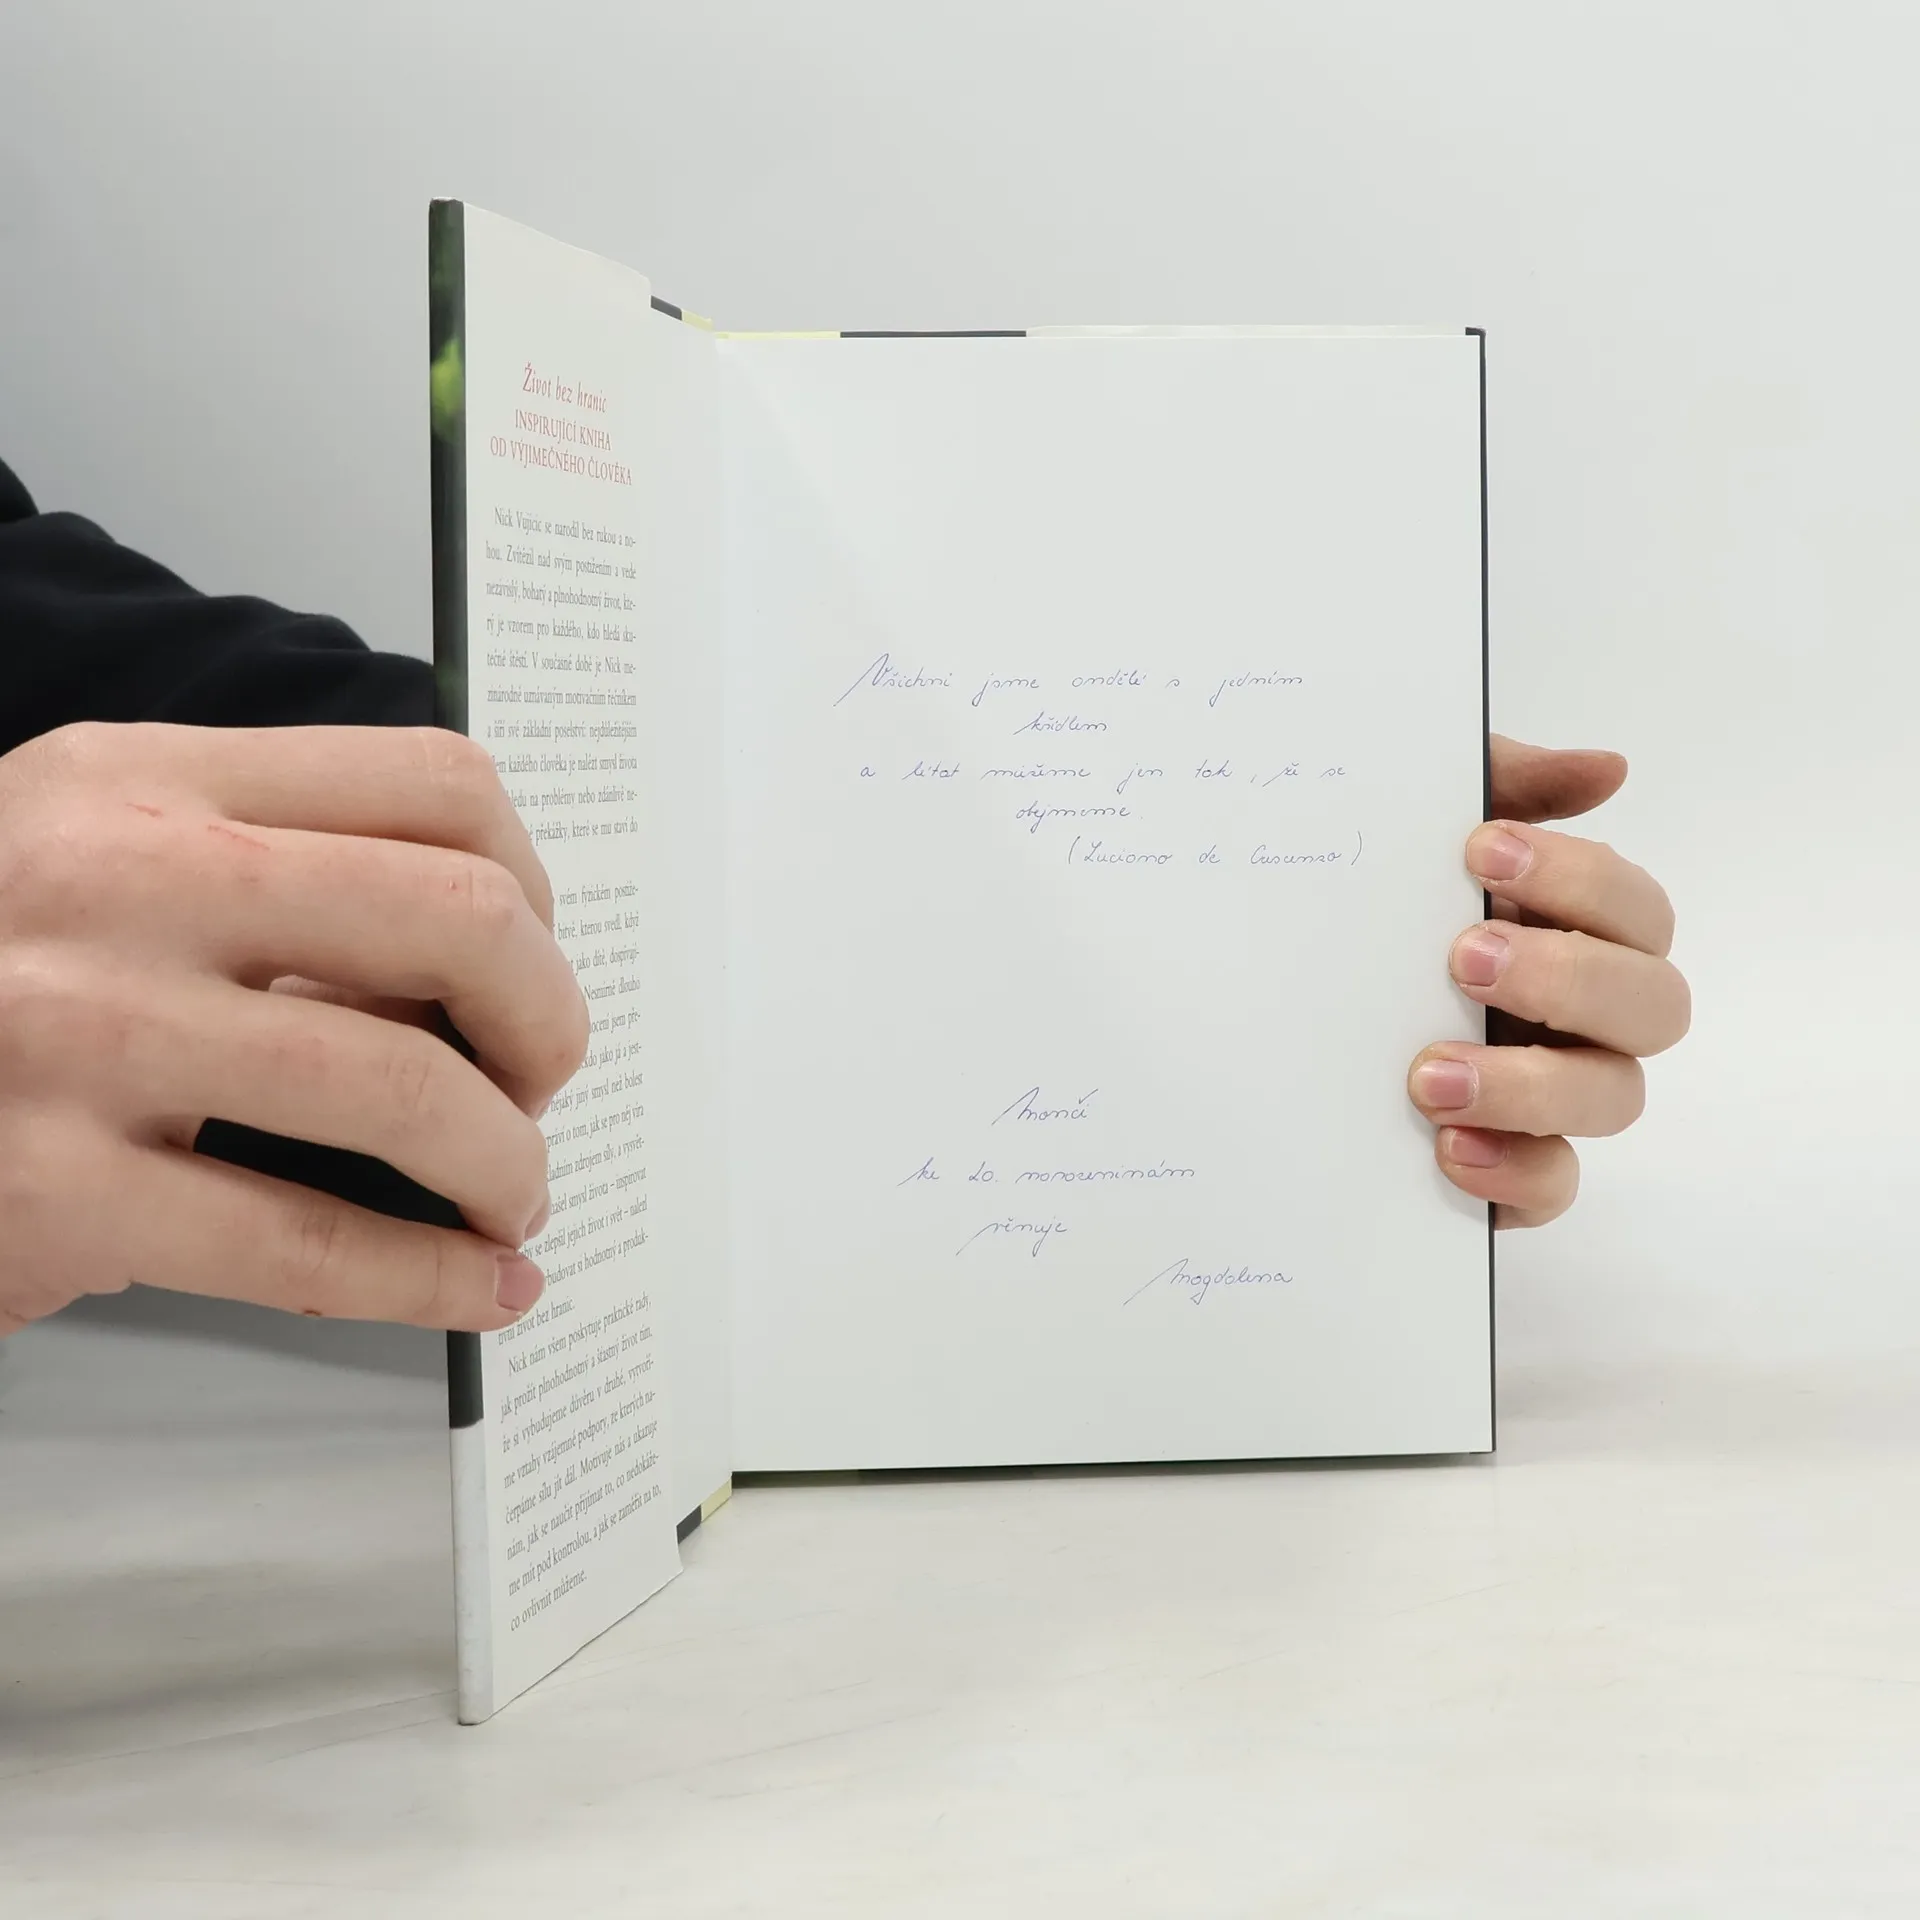 Život bez hranic
INSPIRUJÍCÍ KNIHA
OD VÝJIMEČNÉHO ČLOVĚKA
Nick Vujicic se narodil bez rukou a no-
hou. Zvítězil nad svým postižením a vede
nezávislý, bohatý a plnohodnotný život, kte-
rý je vzorem pro každého, kdo hledá sku-
tečné štěstí. V současné době je Nick me-
zinárodně uznávaným motivačním řečníkem
a šíří své základní poselství: nejdůležitějším
každého člověka je nalézt smysl života
na problémy nebo zdánlivě ne-
překážky, které se mu staví do
svém fyzickém postiže-
bitvě, kterou svedl, když
jako dítě, dospívají-
Nesmírně dlouho
jsem pře-
jako já a jest-
nějaký jiný smysl než bolest
o tom, jak se pro něj víra
zdrojem síly, a vysvět-
smysl života – inspirovat
se zlepšil jejich život i svět – nalezl
si hodnotný a produk-
tivní život bez hranic.
Nick nám všem poskytuje praktické rady,
jak prožít plnohodnotný a šťastný život tím,
že si vybudujeme důvěru v druhé, vytvoří-
me vztahy vzájemné podpory, ze kterých na-
čerpáme sílu jít dál. Motivuje nás a ukazuje
nám, jak se naučit přijímat to, co nedokáže-
me mít pod kontrolou, a jak se zaměřit na to,
co ovlivnit můžeme.
Všichni jsme andělé s jedním
křídlem
a létat můžeme jen tak, že se
obejmeme.
(Luciano de Crescenzo)
Manči
ke 20. narozeninám
věnuje
Magdalena